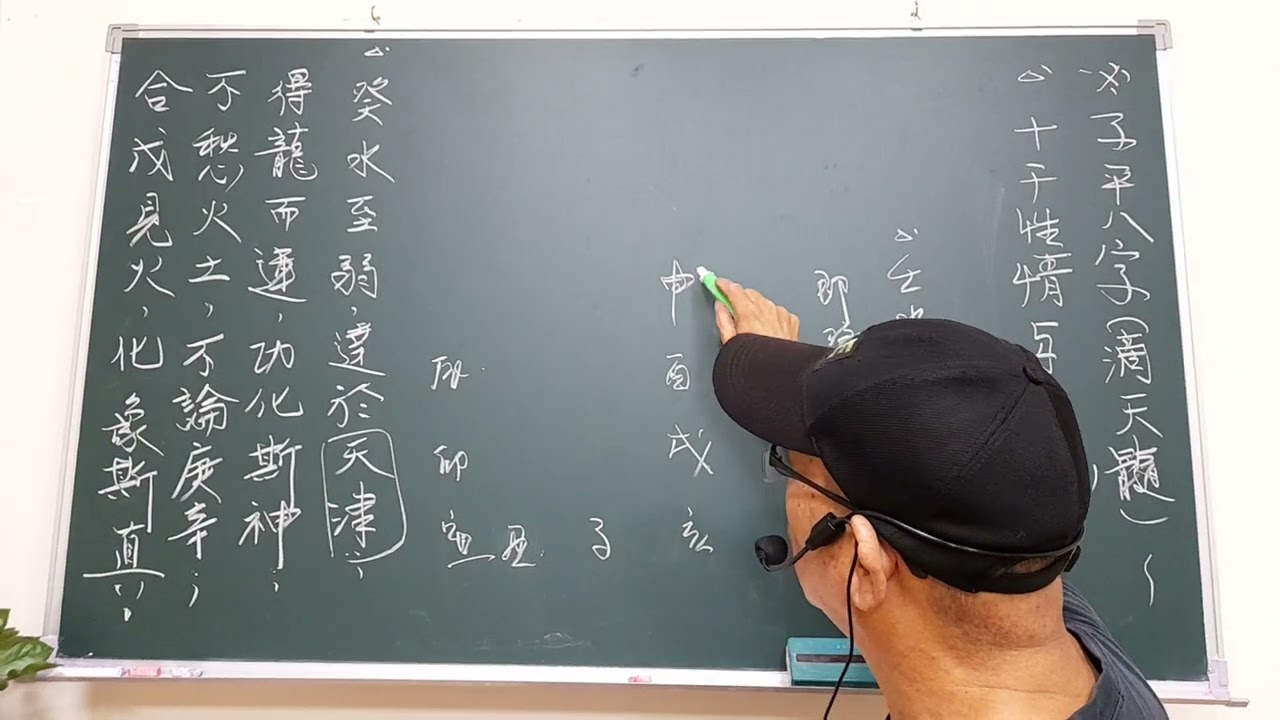 子平八字(滴天髓)~
十干性情与
壬水
即
申
酉
戌
亥
子
丑
寅
卯
辰
癸水至弱,達於天津;
得龍而運,功化斯神;
不愁火土,不論庚辛;
合戊見火,化象斯真!!。